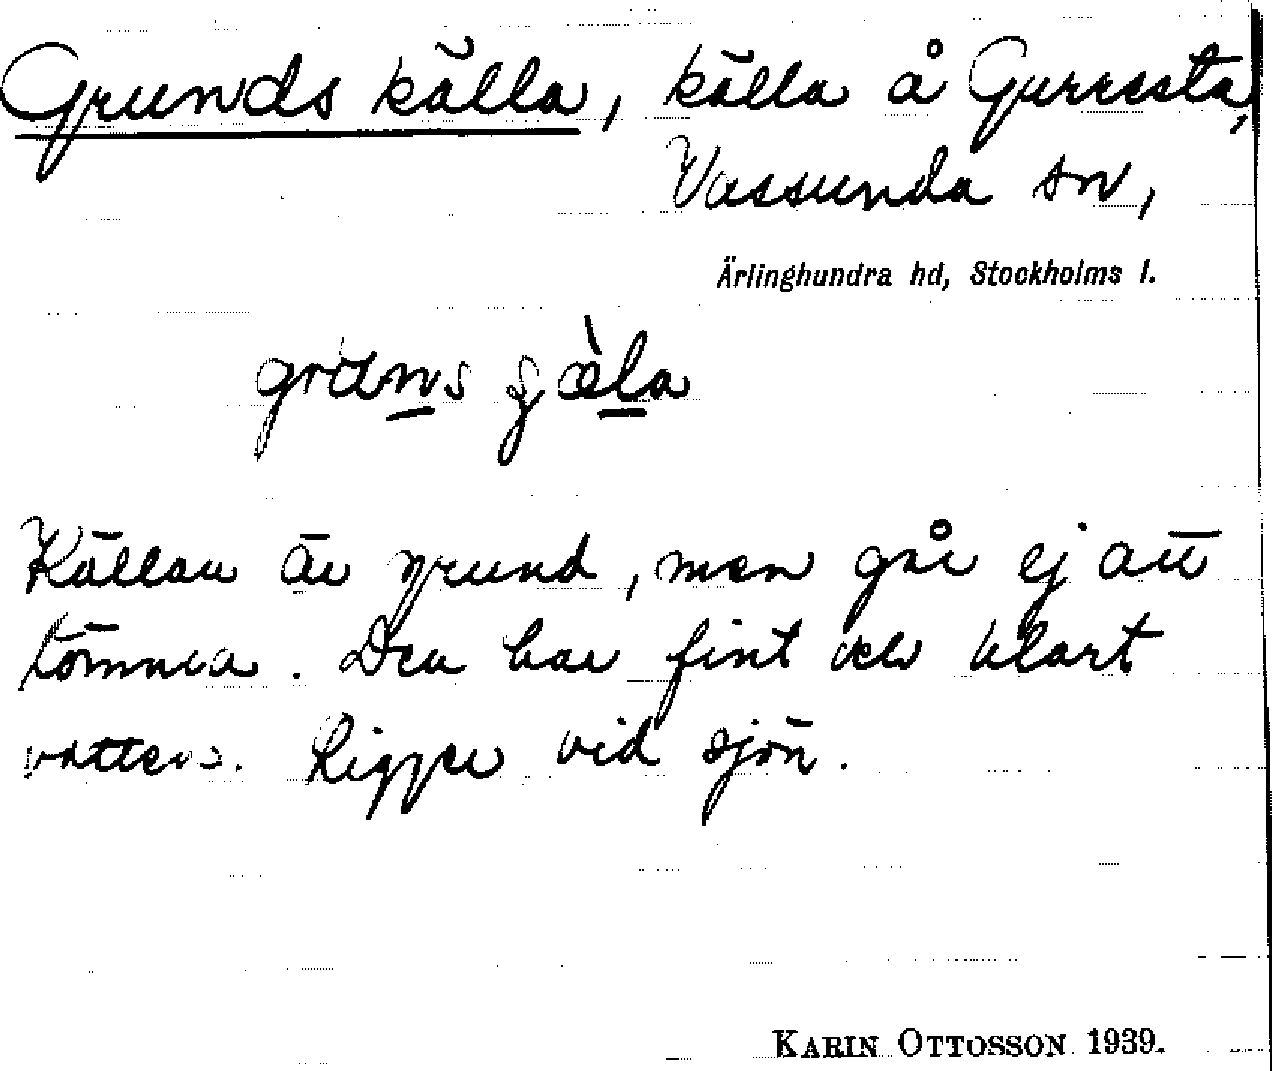 Grunds källa, källa å Gurresta,
Vassunda sn,
Ärlinghundra hd, Stockholms l.
Källan är grund, men går ej att
tömma. Den har fint och klart
vatten. Ligger vid sjön.
KARIN OTTOSSON 1939.